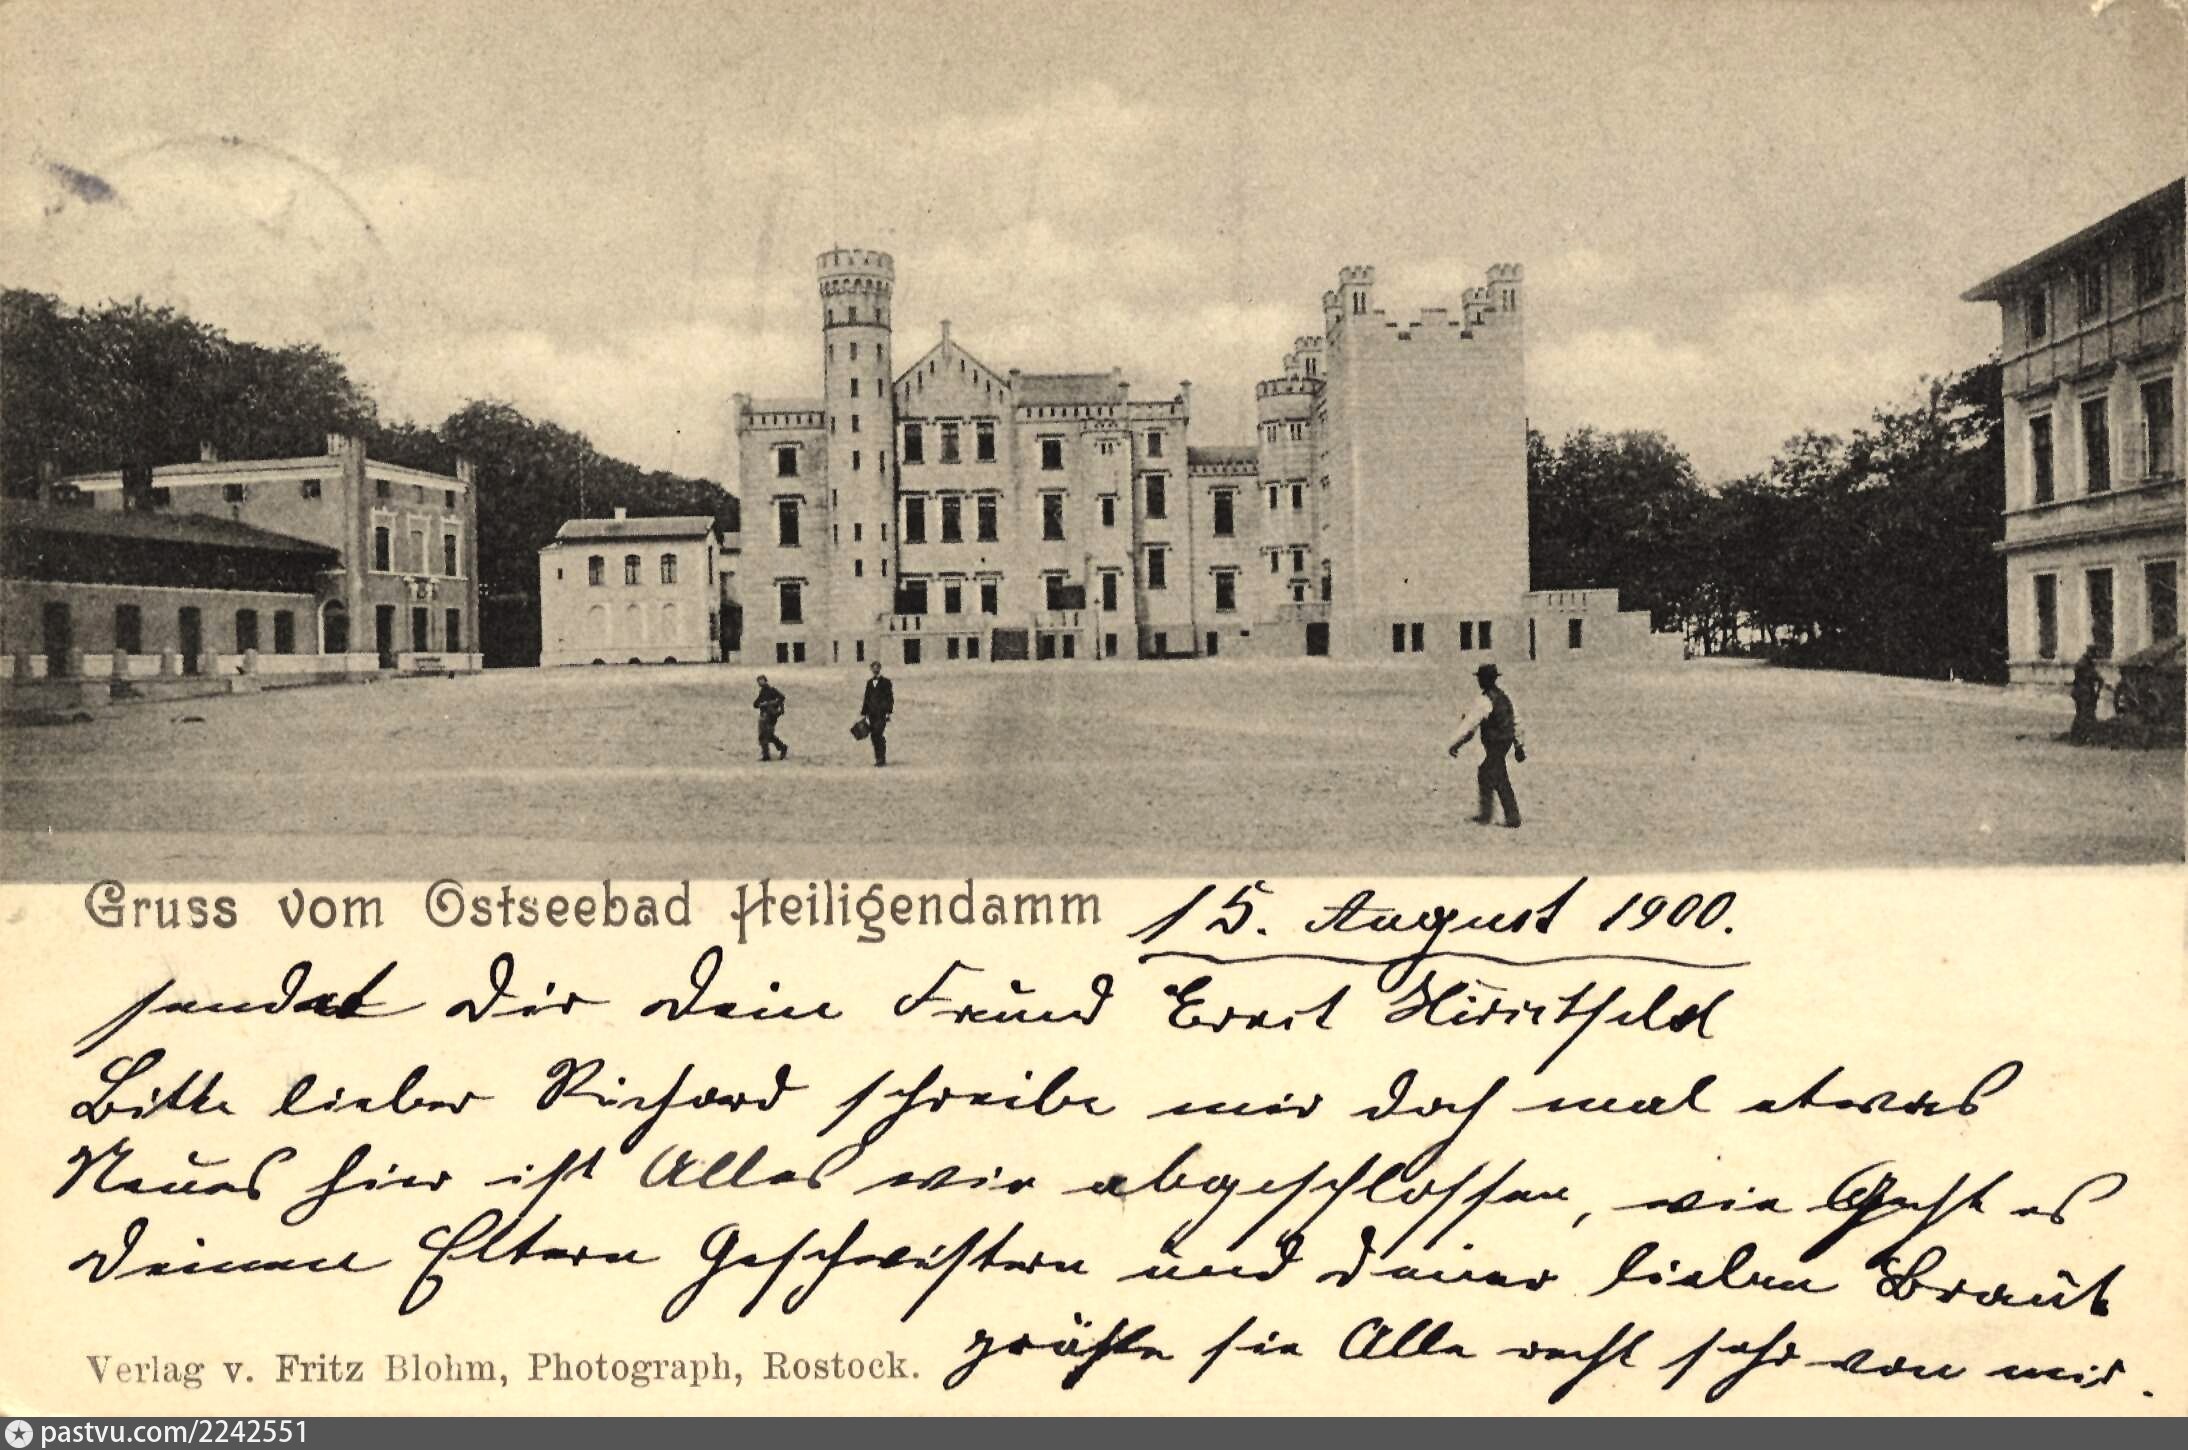 Gruss vom Ostseebad Heiligendamm 15. August 1900.
sendet Dir Dein Freund Ernst Hirschfeld
Bitte lieber Richard schreibe mir doch mal etwas
Neues hier ist Alles wie abgeschlossen, wie geht es
Deinen Eltern Geschwistern und Deiner lieben Braut
grüße sie Alle recht sehr von mir.
Verlag v. Fritz Blohm, Photograph, Rostock.
pastvu.com/2242551